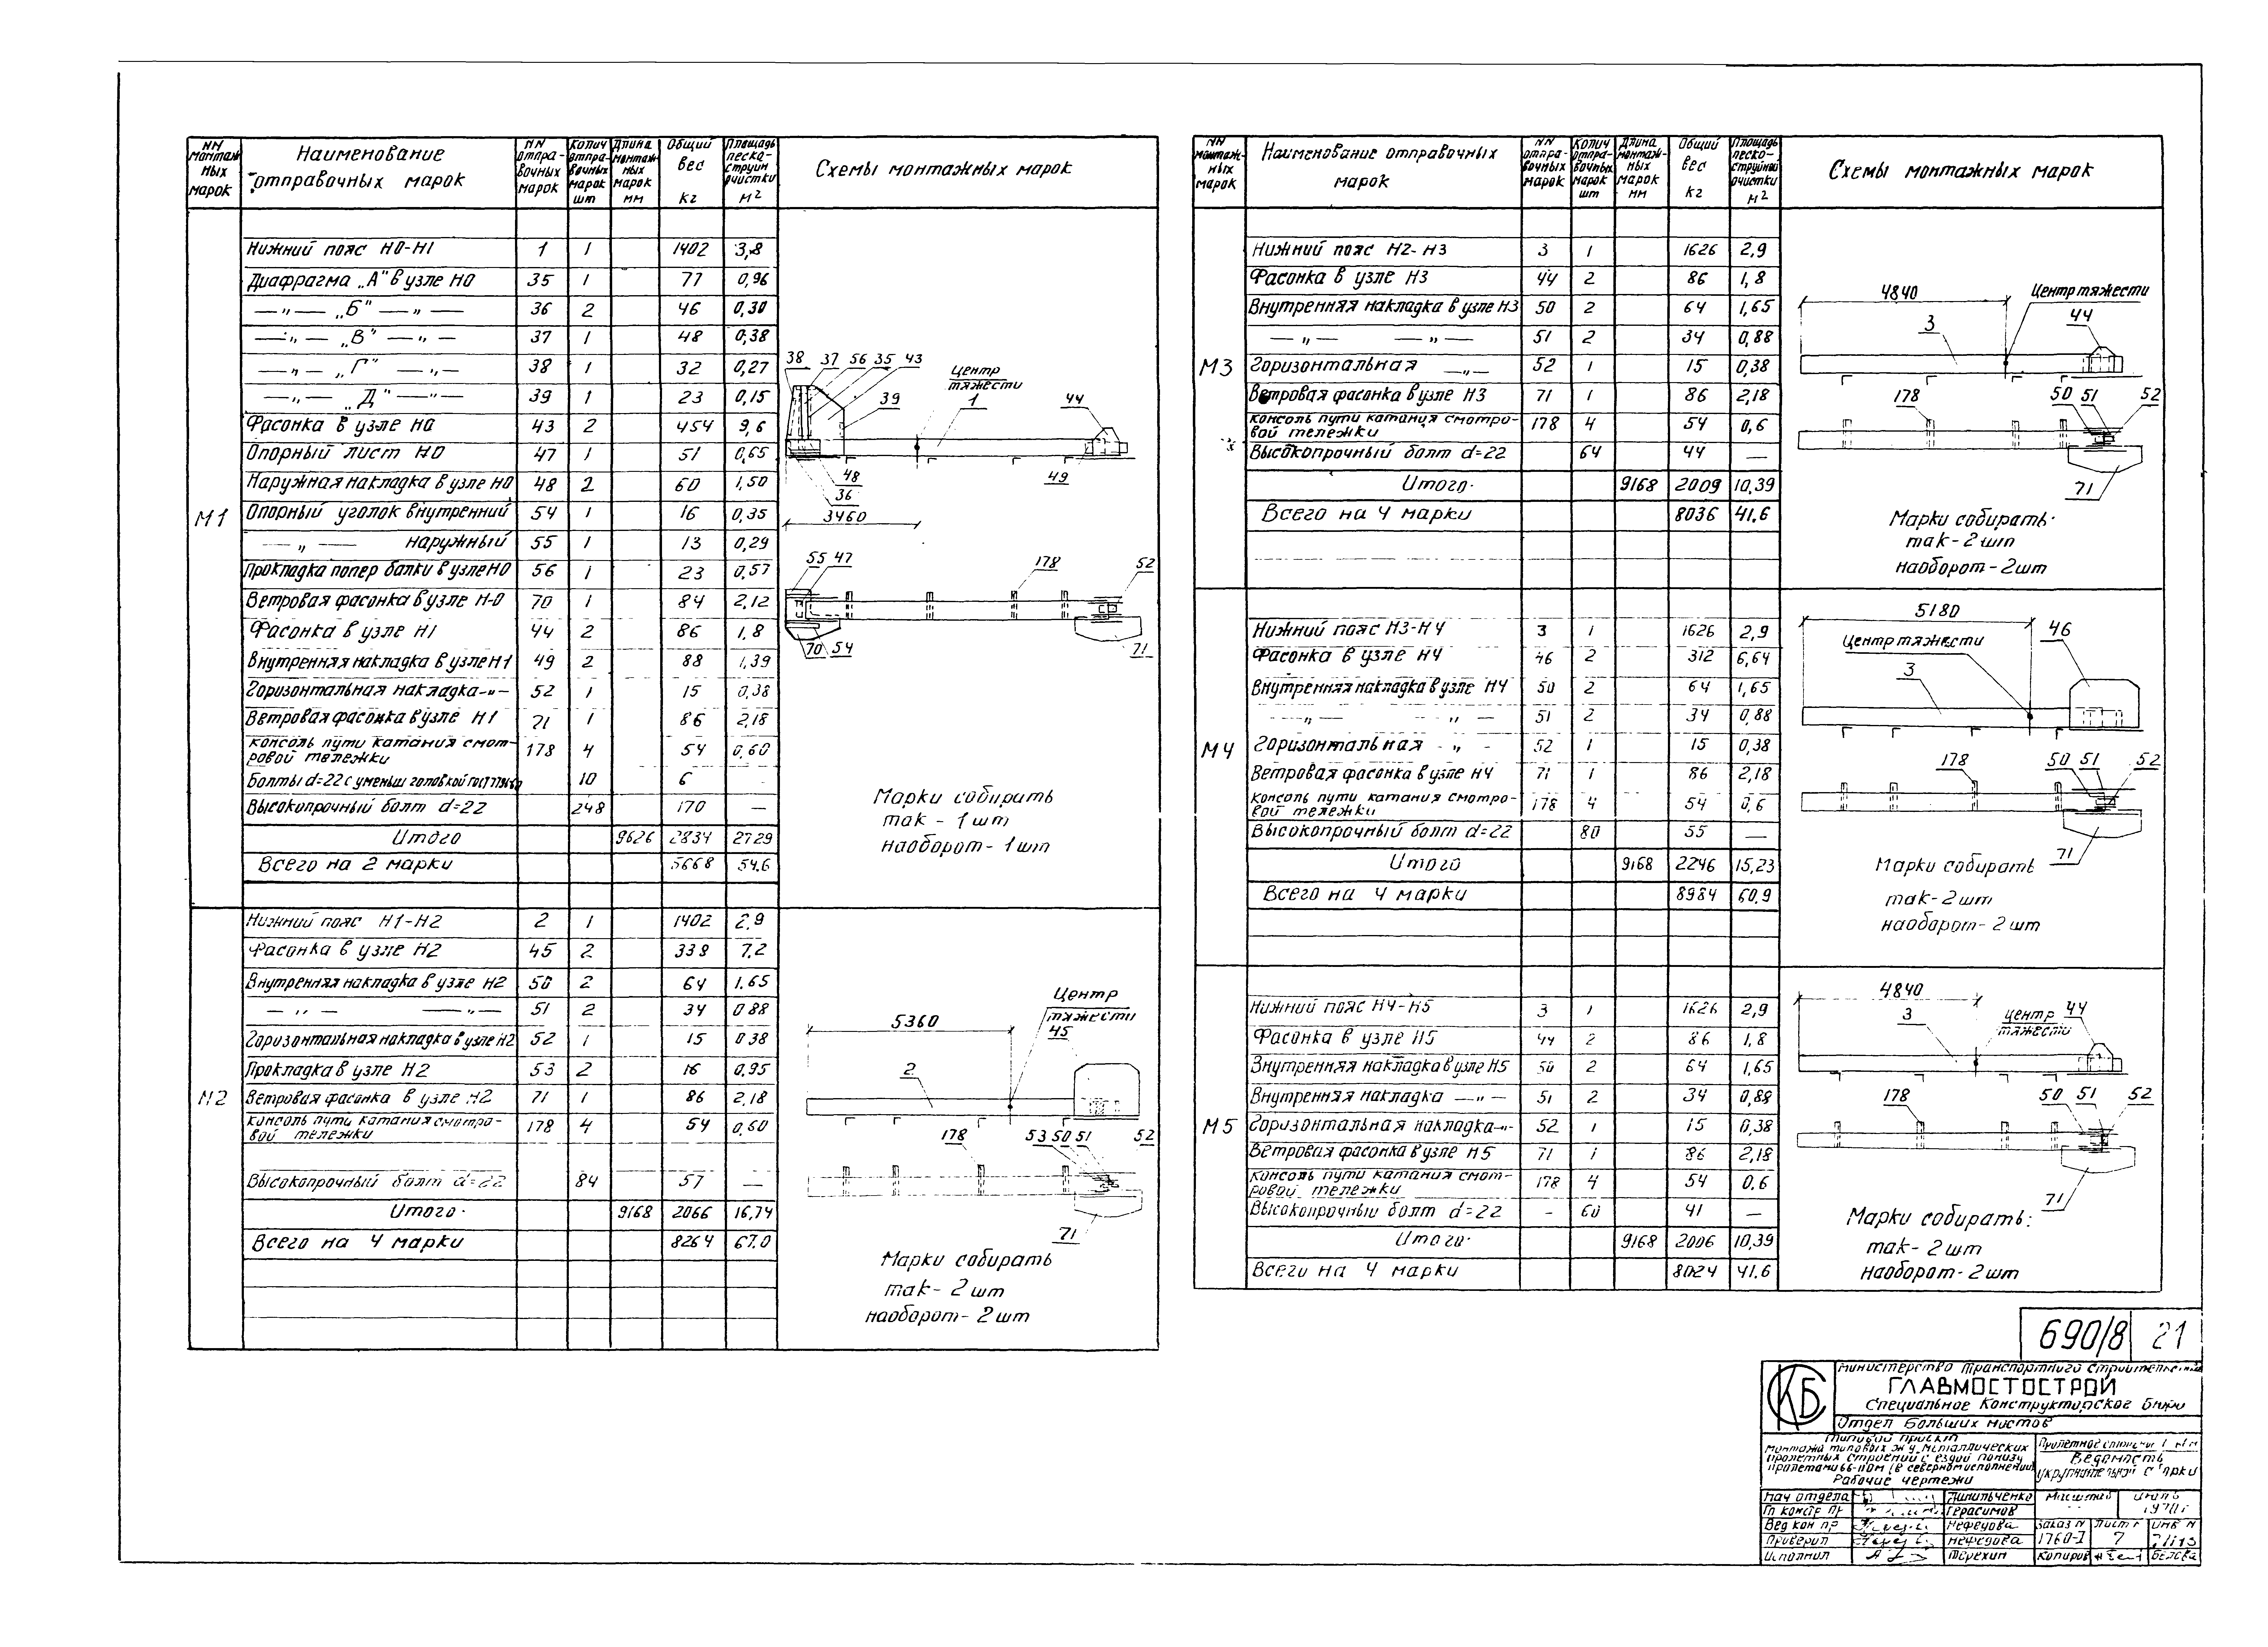 NN монтажных марок | Наименование отправочных марок | NN отправочных марок | Колич отправочных марок шт | Длина монтажных марок мм | Общий вес кг | Площадь пескоструйн очистки м2 | Схемы монтажных марок
М1
Нижний пояс Н0-Н1 1 1 1402 3,8
Диафрагма „А" в узле Н0 35 1 77 0,96
—„— „Б" —„— 36 2 46 0,30
—„— „В" —„— 37 1 48 0,38
—„— „Г" —„— 38 1 32 0,27
—„— „Д" —„— 39 1 23 0,15
Фасонка в узле Н0 43 2 454 9,6
Опорный лист Н0 47 1 51 0,65
Наружная накладка в узле Н0 48 2 60 1,50
Опорный уголок внутренний 54 1 16 0,35
—„— наружный 55 1 13 0,29
Прокладка попер балки в узле Н0 56 1 23 0,57
Ветровая фасонка в узле Н-0 70 1 84 2,12
Фасонка в узле Н1 44 2 86 1,8
Внутренняя накладка в узле Н1 49 2 88 1,39
Горизонтальная накладка -„- 52 1 15 0,38
Ветровая фасонка в узле Н1 71 1 86 2,18
консоль пути катания смот-
ровой тележки 178 4 54 0,60
Болты d=22 с уменьш головкой ГОСТ 10 6 —
Высокопрочный болт d=22 248 170 —
Итого 9626 2834 27.29
Всего на 2 марки 5668 54.6
38 37 56 35 43
Центр
тяжести
39 1 44
48
36
49
3460
55 47 178 52
70 54 71
Марки собирать
так - 1 шт
наоборот - 1шт
М2
Нижний пояс Н1-Н2 2 1 1402 2,9
Фасонка в узле Н2 45 2 338 7.2
Внутренняя накладка в узле Н2 50 2 64 1.65
—„— —„— 51 2 34 0 88
Горизонтальная накладка в узле Н2 52 1 15 0 38
Прокладка в узле Н2 53 2 16 0,95
Ветровая фасонка в узле Н2 71 1 86 2,18
консоль пути катания смотро-
вой тележки 178 4 54 0,60
Высокопрочный болт d=22 84 57 —
Итого 9168 2066 16,74
Всего на 4 марки 8264 67.0
Центр
тяжести
5360
45
2
178 53 50 51 52
71
Марки собирать
так - 2 шт
наоборот - 2 шт
NN монтажных марок | Наименование отправочных марок | NN отправочных марок | Колич отправочных марок шт | Длина монтажных марок мм | Общий вес кг | Площадь пескоструйной очистки м2 | Схемы монтажных марок
М3
Нижний пояс Н2-Н3 3 1 1626 2,9
Фасонка в узле Н3 44 2 86 1,8
Внутренняя накладка в узле Н3 50 2 64 1,65
—„— —„— 51 2 34 0,88
Горизонтальная —„— 52 1 15 0,38
Ветровая фасонка в узле Н3 71 1 86 2,18
консоль пути катания смотро-
вой тележки 178 4 54 0,6
Высокопрочный болт d=22 64 44 —
Итого 9168 2009 10,39
Всего на 4 марки 8036 41.6
4840
Центр тяжести
44
3
178 50 51 52
71
Марки собирать:
так - 2 шт
наоборот - 2шт
М4
Нижний пояс Н3-Н4 3 1 1626 2,9
Фасонка в узле Н4 46 2 312 6,64
Внутренняя накладка в узле Н4 50 2 64 1,65
—„— —„— 51 2 34 0,88
Горизонтальная -„- 52 1 15 0,38
Ветровая фасонка в узле Н4 71 1 86 2,18
консоль пути катания смотро-
вой тележки 178 4 54 0,6
Высокопрочный болт d=22 80 55 —
Итого 9168 2246 15,23
Всего на 4 марки 8984 60.9
5180
46
Центр тяжести
3
178 50 51 52
71
Марки собирать
так - 2 шт
наоборот - 2 шт
М5
Нижний пояс Н4-Н5 3 1 1626 2,9
Фасонка в узле Н5 44 2 86 1,8
Внутренняя накладка в узле Н5 50 2 64 1,65
Внутренняя накладка —„— 51 2 34 0,88
Горизонтальная накладка -„- 52 1 15 0,38
Ветровая фасонка в узле Н5 71 1 86 2,18
консоль пути катания смот-
ровой тележки 178 4 54 0.6
Высокопрочный болт d=22 - 60 41 —
Итого 9168 2006 10,39
Всего на 4 марки 8024 41.6
4840
44
3
центр
тяжести
178 50 51 52
71
Марки собирать:
так - 2 шт
наоборот - 2 шт
690/8 21
СКБ
Министерство Транспортного Строительства
ГЛАВМОСТОСТРОЙ
Специальное Конструкторское Бюро
Отдел Больших мостов
Типовой проект
монтажа типовых ж д металлических
пролетных строений с ездой понизу
пролетами 66-110м (в северном исполнении)
Рабочие чертежи
Пролетное строение
Ведомость
укрупнительной сборки
Нач отдела Данильченко Масштаб
Гл констр пр Герасимов 1970г
Вед кон пр Нефедова Заказ N Лист N Инв N
Проверил Нефедова 1760-I 7
Исполнил Терехин Копиров Белова